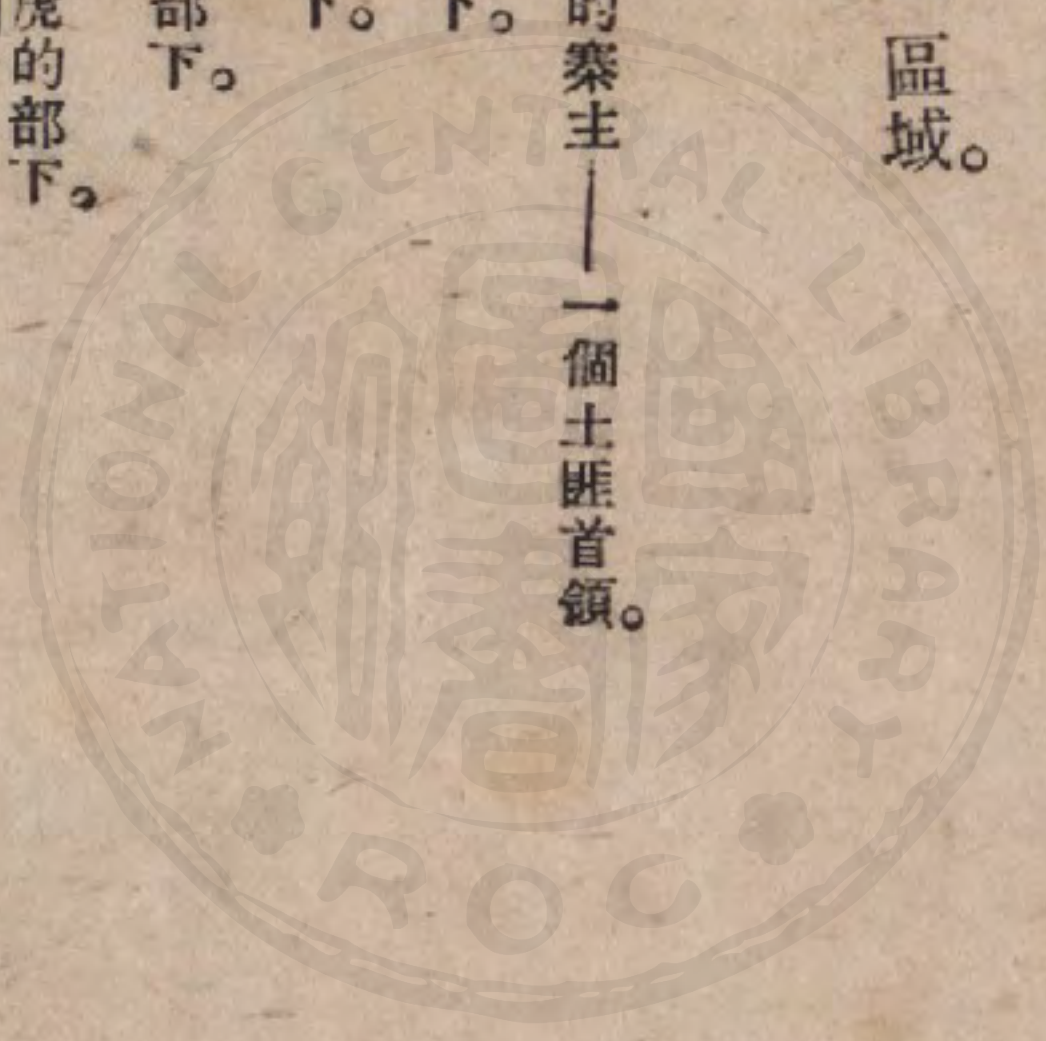 區域。
的寨主——一個土匪首領。
下。
下。
部下。
虎的部下。
NATIONAL CENTRAL LIBRARY
ROC
國家圖書館